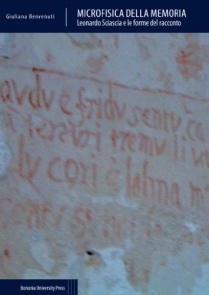 Giuliana Benvenuti
MICROFISICA DELLA MEMORIA
Leonardo Sciascia e le forme del racconto
audu e fridu sentu ca
tremu li vu
lu cori e lalma m
Bononia University Press